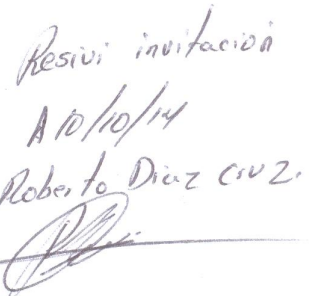 Resivi invitación
A 10/10/14
Roberto Diaz Cruz.